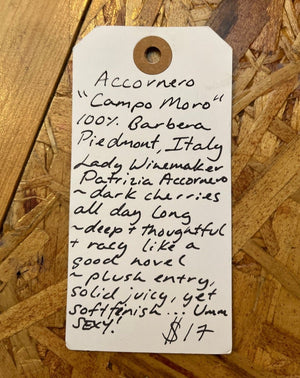 Accornero
"Campo Moro"
100% Barbera
Piedmont, Italy
Lady Winemaker
Patrizia Accornero
~dark cherries
all day long
~deep + thoughtful
+ racy like a
good novel
~plush entry,
solid juicy, yet
soft finish... Umm
SEXY! $17